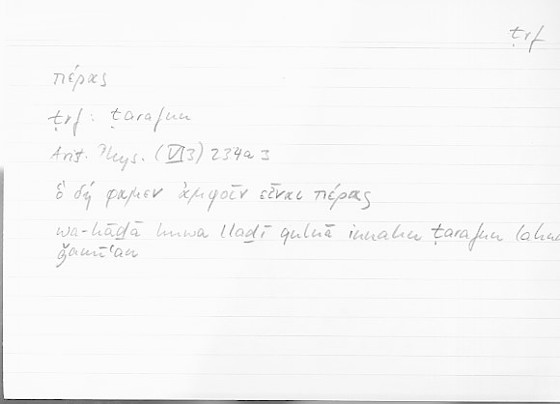 ṭrf
πέρας
ṭrf: ṭarafun
Arist. Phys. (VI 3) 234a3
ὃ δή φαμεν ἀμφοῖν εἶναι πέρας
wa-hāḏā huwa llaḏī qulnā innahu ṭarafun lahu
ǧamīʿan